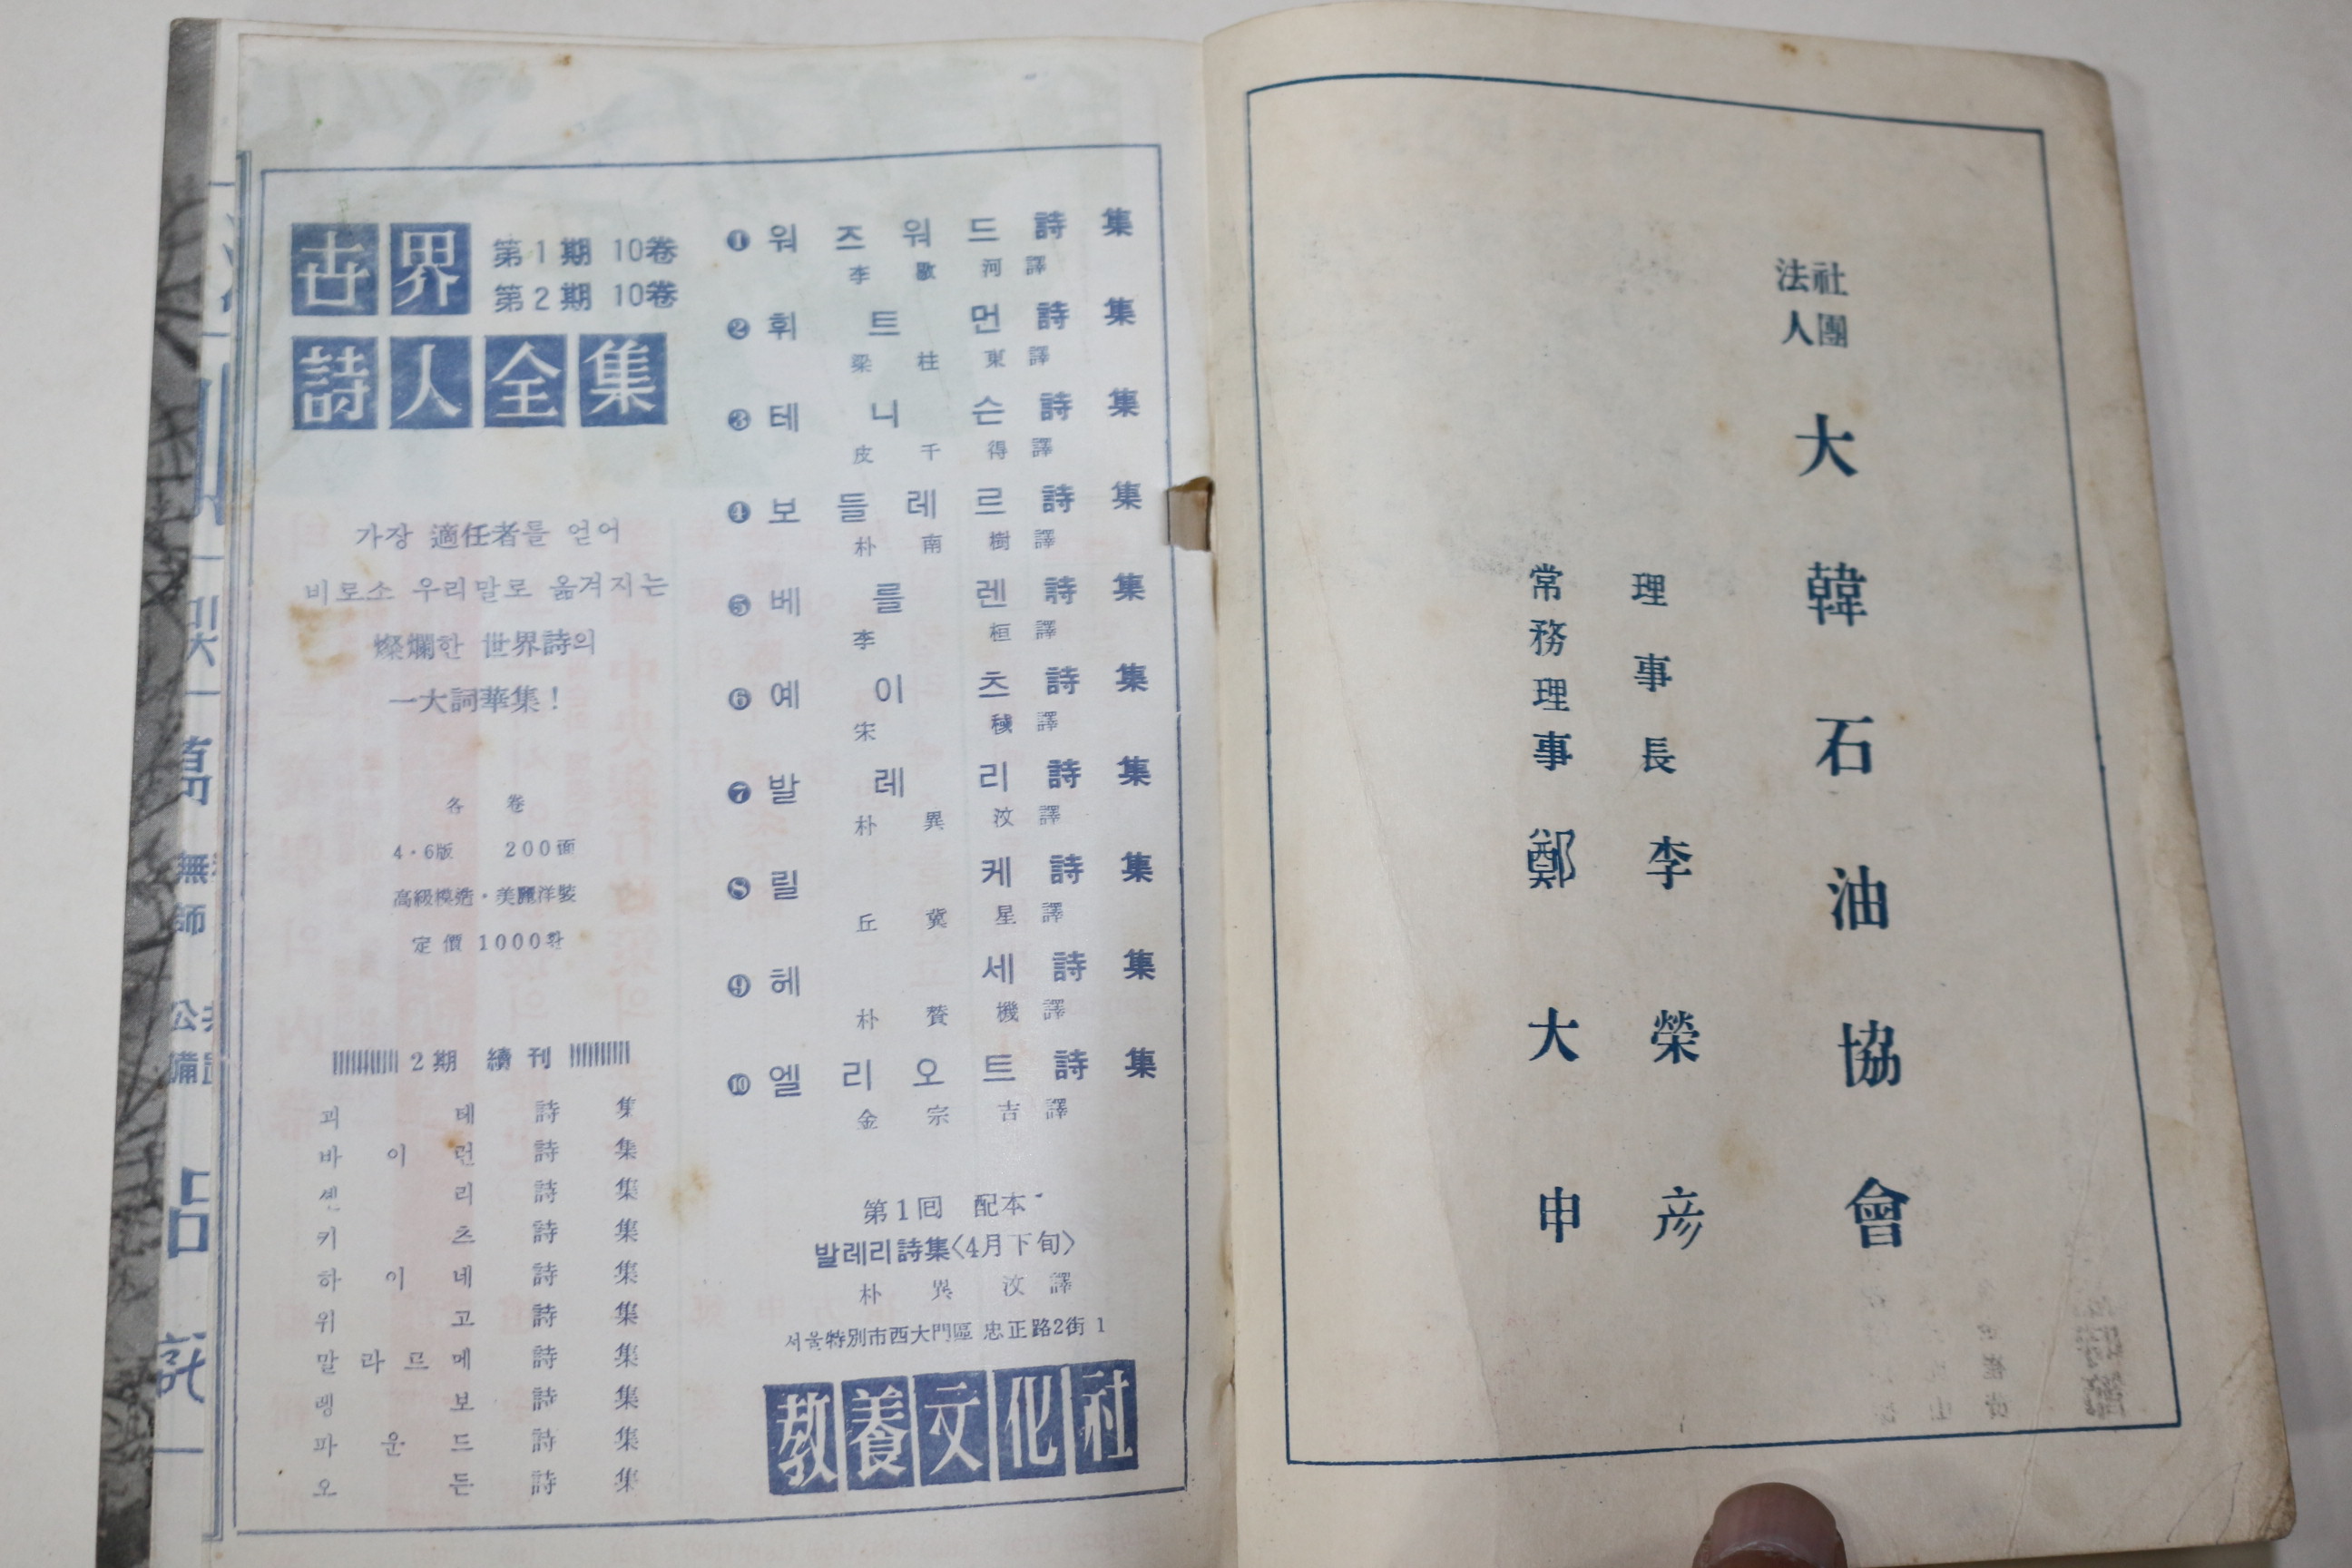 世界
詩人全集
第1期 10卷
第2期 10卷
가장 適任者를 얻어
비로소 우리말로 옮겨지는
燦爛한 世界詩의
一大詞華集!
各 卷
4·6版 200面
高級模造·美麗洋裝
定價 1000환
2期 續刊
괴테詩集
바이런詩集
셸리詩集
키츠詩集
하이네詩集
위고詩集
말라르메詩集
랭보詩集
파운드詩集
오든詩集
❶ 워즈워드詩集
李敭河 譯
❷ 휘트먼詩集
梁柱東 譯
❸ 테니슨詩集
皮千得 譯
❹ 보들레르詩集
朴南樹 譯
❺ 베를렌詩集
李桓 譯
❻ 예이츠詩集
宋稶 譯
❼ 발레리詩集
朴異汶 譯
❽ 릴케詩集
丘冀星 譯
❾ 헤세詩集
朴贊機 譯
❿ 엘리오트詩集
金宗吉 譯
第1回 配本
발레리詩集<4月下旬>
朴異汶 譯
서울特別市西大門區 忠正路2街 1
教養文化社
社團法人
大韓石油協會
理事長 李榮彦
常務理事 鄭大申